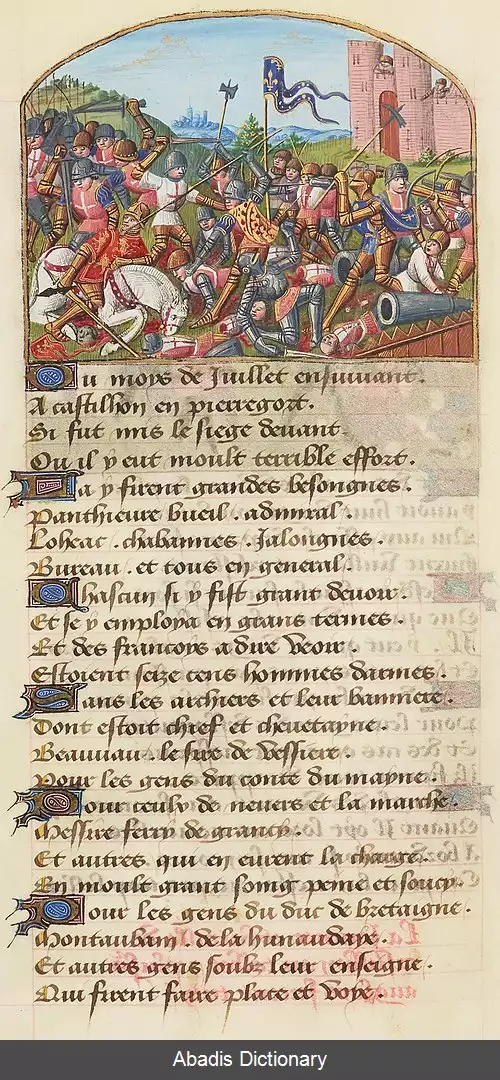 Ou moys de Juillet ensuivant.
A castilhon en pierregort.
Si fut mis le siege devant
Ou il y eut moult terrible effort.
La y firent grandes besongnes.
Panthieure bueil. admiral.
Loheac. chabannes. Jalongnes.
Bureau. et tous en general.
Chascun si y fist grant devoir.
Et se y employa en grans termes.
Et des francoys a dire veoir.
Estoient seize cens hommes darmes.
Sans les archiers et leur banniere.
Dont estoit chief et chevetayne.
Beauvau. le sire de
Pour les gens du conte du mayne.
Pour ceulx de nevers et la marche.
Messire ferry de grancy.
Et autres qui en eurent la charge.
En moult grant soing peine et soucy.
Pour les gens du duc de bretaigne.
Montauban. de la hunaudaye.
Et autres gens soubz leur enseigne.
Qui firent faire place et voye.
Abadis Dictionary